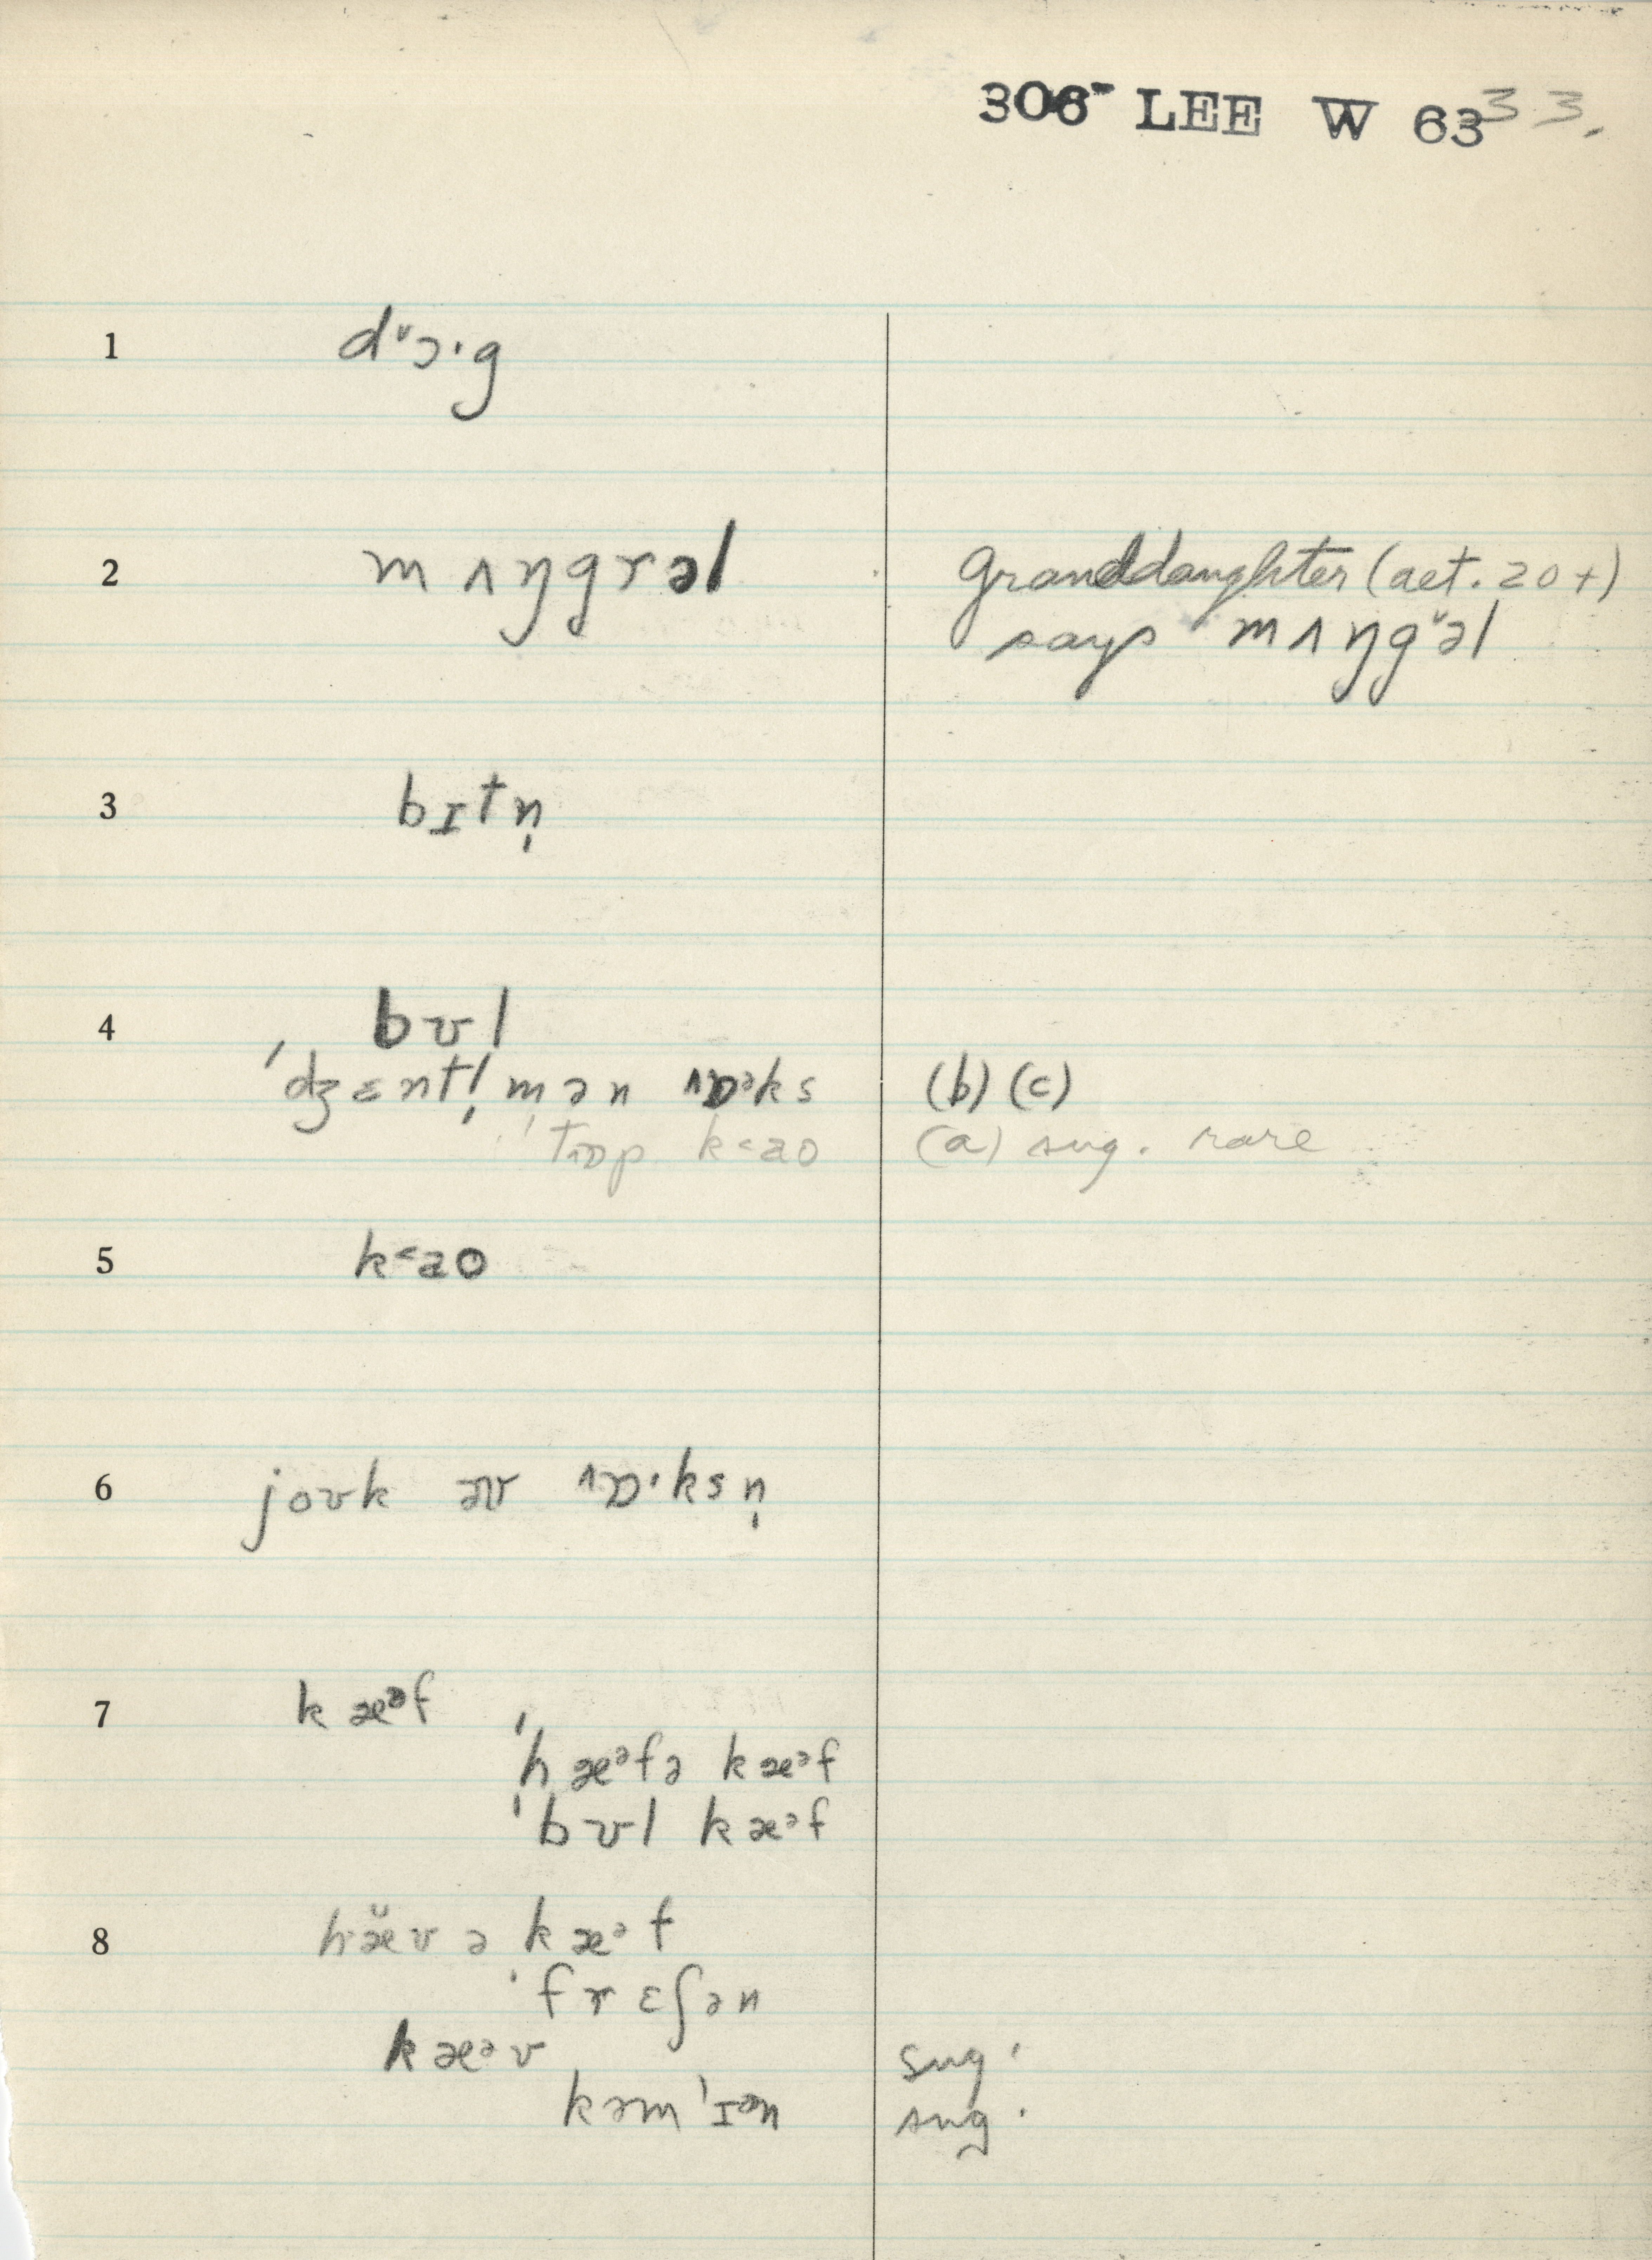 306 LEE W 63 33.
1 dᵛɔ·g
2 mʌŋgrəl granddaughter (aet. 20+)
says mʌŋgᵛəl
3 bɪtn̩
4 bʊl
ˈdʒɛntl̩mən ɒᵊks (b) (c)
ˈtɒp k<aʊ (a) sug. rare
5 k<ao
6 joʊk əv ɒ·ksn̩
7 kæᵊf
ˈhæᵊfə kæᵊf
ˈbʊl kæᵊf
8 hæ̆v ə kæᵊf
ˈfrɛʃən
kæᵊv sug.
kəmˈɪən sug.